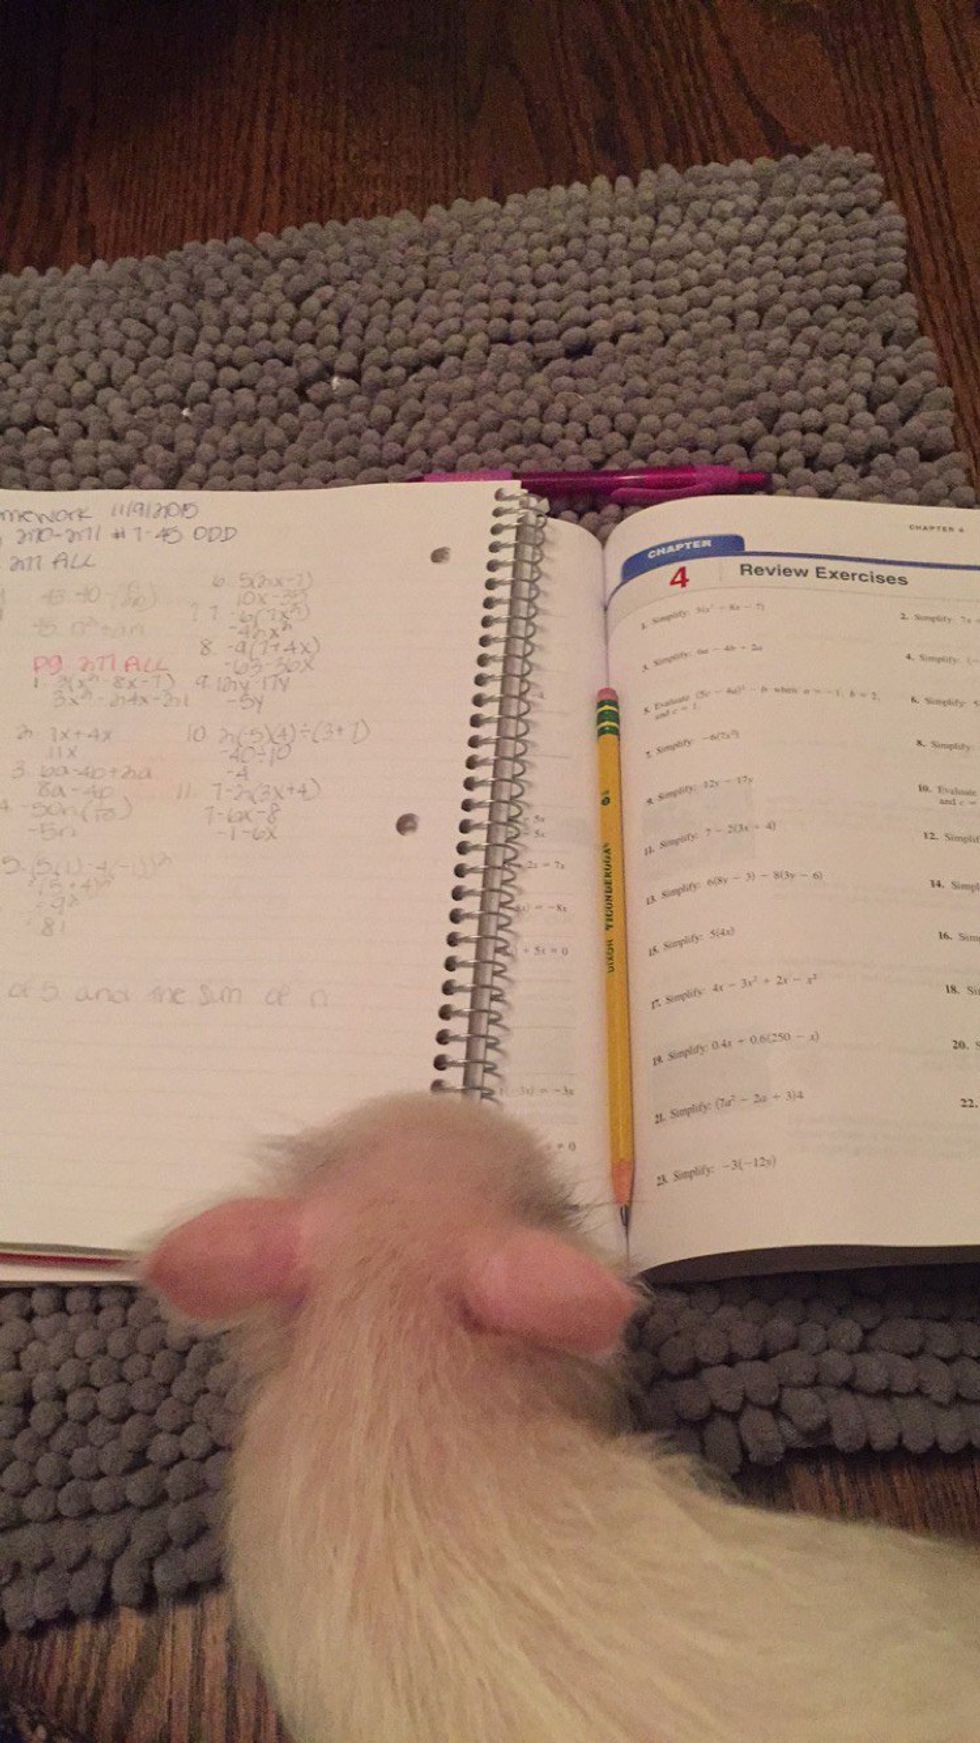 mework 11/9/2015
270-271 #7-45 ODD
277 ALL
pg. 277 ALL
1. 3(x²-8x-7)
3x²-24x-21
2. 7x+4x
11x
3. 6a-4b+2a
8a-4b
-5n
5. (5(1)-4(-1))²
(5+4)²
9²
81
6. 5(2x-7)
10x-35
7. -6(7x²)
-42x²
8. -9(7+4x)
-63-36x
9. 12y-17y
-5y
10. 2(-5)(4)÷(3+7)
-40÷10
-4
11. 7-2(3x+4)
7-6x-8
-1-6x
of 5 and the sum of n
DIXON TICONDEROGA
CHAPTER 4
CHAPTER
4
Review Exercises
1. Simplify: 3(x² − 8x − 7)
2. Simplify: 7x
3. Simplify: 6a − 4b + 2a
4. Simplify:
5. Evaluate (5c − 4a)² − b when a = −1, b = 2,
and c = 1.
6. Simplify: 5
7. Simplify: −6(7x²)
8. Simplify:
9. Simplify: 12y − 17y
10. Evaluate
and c =
11. Simplify: 7 − 2(3x + 4)
12. Simplif
13. Simplify: 6(8y − 3) − 8(3y − 6)
14. Simpl
15. Simplify: 5(4x)
16. Sim
17. Simplify: 4x − 3x² + 2x − x²
18. Si
19. Simplify: 0.4x + 0.6(250 − x)
20. S
21. Simplify: (7a² − 2a + 3)4
22.
23. Simplify: −3(−12y)
= 5x
= 5x
2x = 7x
= −8x
+ 5t = 0
−3x) = −3x